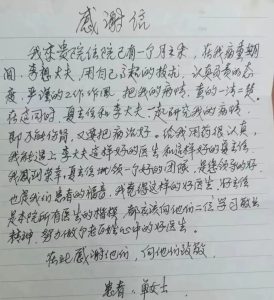 感谢信
我来贵院住院已有一个月主来，在我病重期
间，李想大夫，用自己了私的技术，认真负责的态
度，严谨的工作作风，把我的病情，查的一清二楚
在这同时，真主任和李大夫一起研究我的病情，
即不的伤肾，又要把病治好。给我用药很认真，
我能遇上李大夫这样好的医生和这样好的真主任，
我感到荣幸，真主任地领一个好的团队，是医领导的好
也是我们患者的福音，我觉得这样的好医生，好主任
是本院所有医生的楷模，都应该向他们二位学习敬业
精神，努力做个老百姓心中的好医生。
在此感谢他们，向他们致敬
患者：单女士